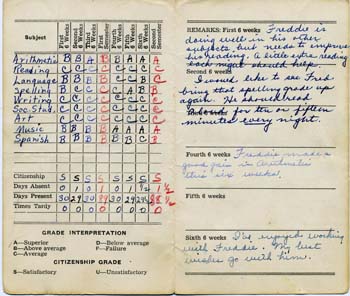 Subject
First 6 Weeks
Second 6 Weeks
Third 6 Weeks
First Semester
Fourth 6 Weeks
Fifth 6 Weeks
Sixth 6 Weeks
Second Semester
Arithmetic B B A B B A A A
Reading C C C C C C C C
Language B B B B
Spelling B C C C A B B B
Writing C C C C C C C C
Soc. Stud. C C C C C C C C
Art C C C C C C C
Music B B A B A A A A
Spanish B B B B B B B B
Citizenship S S S S S S S S
Days Absent 0 1 0 1 0
Days Present 30 29 30 89
Times Tardy 0 0 0 0 0 0 0 0
GRADE INTERPRETATION
A—Superior D—Below average
B—Above average F—Failure
C—Average
CITIZENSHIP GRADE
S—Satisfactory U—Unsatisfactory
REMARKS: First 6 weeks Freddie is
doing well in his other
subjects but needs to improve
his reading. A little extra reading
each night should help.
Second 6 weeks
I would like to see Fred
bring that spelling grade up
again. He should read
for ten or fifteen
minutes every night.
Fourth 6 weeks Freddie made a
good gain in Arithmetic
this six weeks.
Fifth 6 weeks
Sixth 6 weeks I've enjoyed working
with Freddie. My best
wishes go with him.